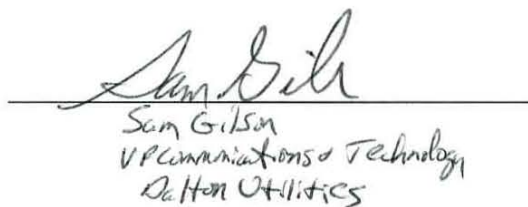 Sam Gilson
Sam Gilson
VP Communications & Technology
Dalton Utilities